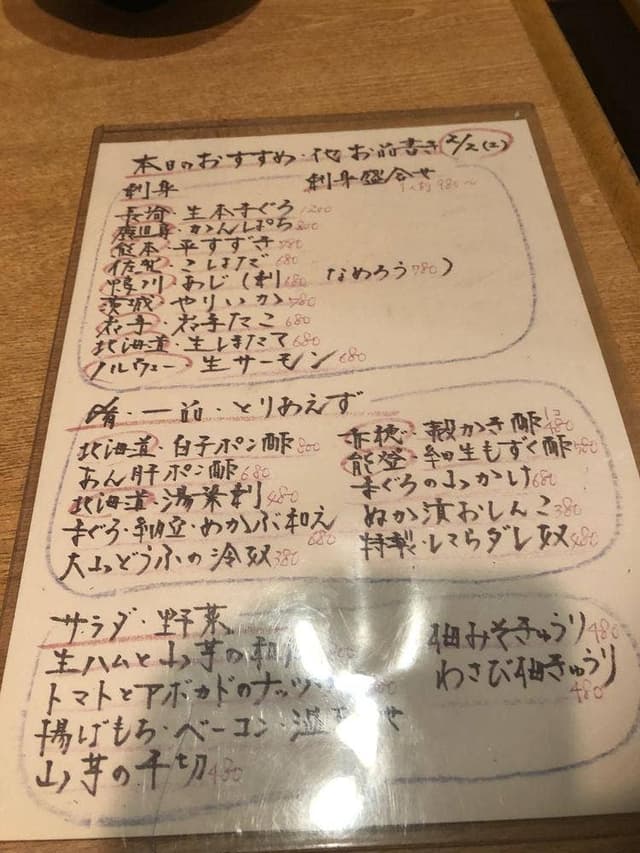 本日のおすすめ・他お品書き 2/2(土)
刺身
刺身盛合せ
1人前 980〜
長崎・生本まぐろ 1200
鹿児島・かんぱち 800
熊本・平すずき 780
佐賀・こはだ 680
鴨川・あじ(刺 680 なめろう 780)
茨城・やりいか 780
岩手・岩手たこ 680
北海道・生ほたて 680
ノルウェー・生サーモン 680
肴・一品・とりあえず
北海道・白子ポン酢 800
あん肝ポン酢 680
北海道・湯葉刺 480
まぐろ・納豆・めかぶ和え 680
大山どうふの冷奴 380
赤穂・殻かき酢 1コ 480
能登・細生もずく酢 580
まぐろの山かけ 680
ぬか漬おしんこ 380
特製・しびらダレ奴 480
サラダ・野菜
生ハムと山芋の
トマトとアボカドのナッツ
揚げもち・ベーコン・温
山芋の千切 480
梅みそきゅうり 480
わさび梅きゅうり 480